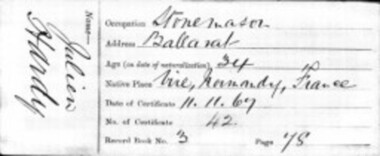 Name—
Julien
Hardy
Occupation Stonemason
Address Ballarat
Age (on date of naturalization), 34
Native Place Vire, Normandy, France
Date of Certificate 11.11.67
No. of Certificate 42
Record Book No. 3 Page 78